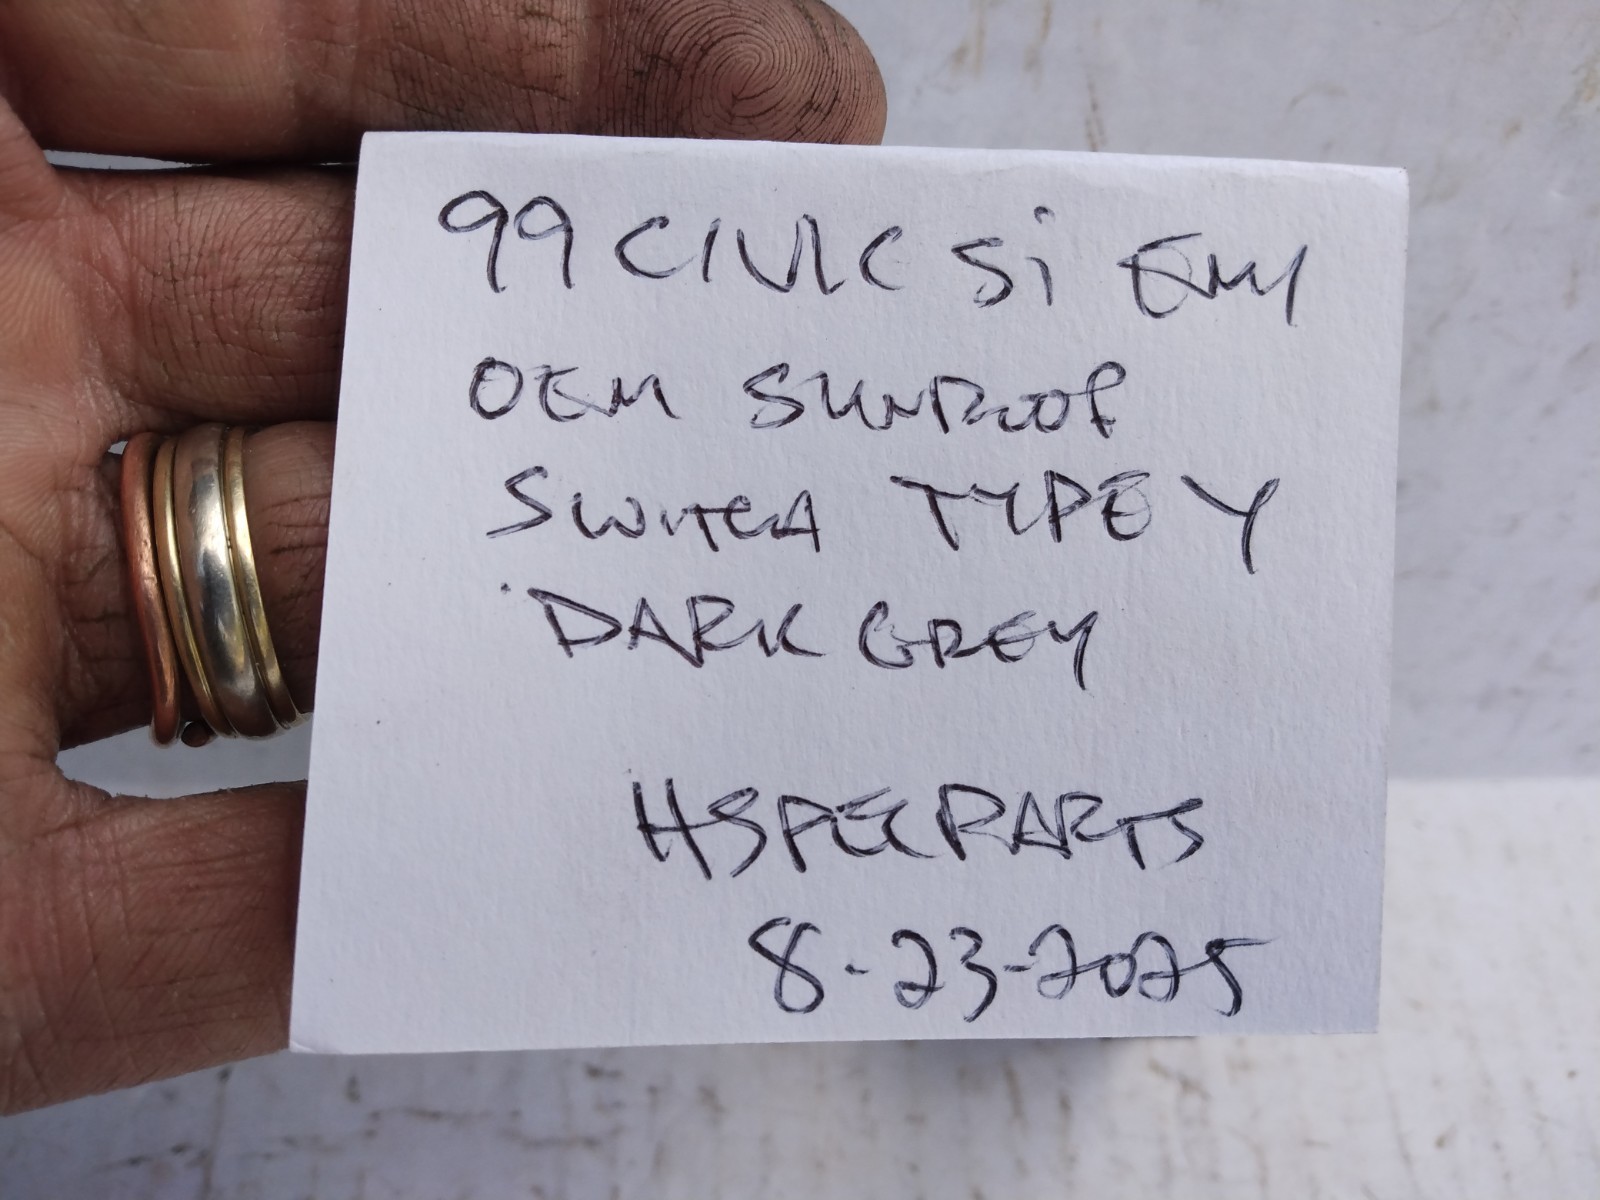 99 CIVIC Si EM1
OEM SUNROOF
SWITCH TYPE Y
DARK GREY
HSPECPARTS
8-23-2025